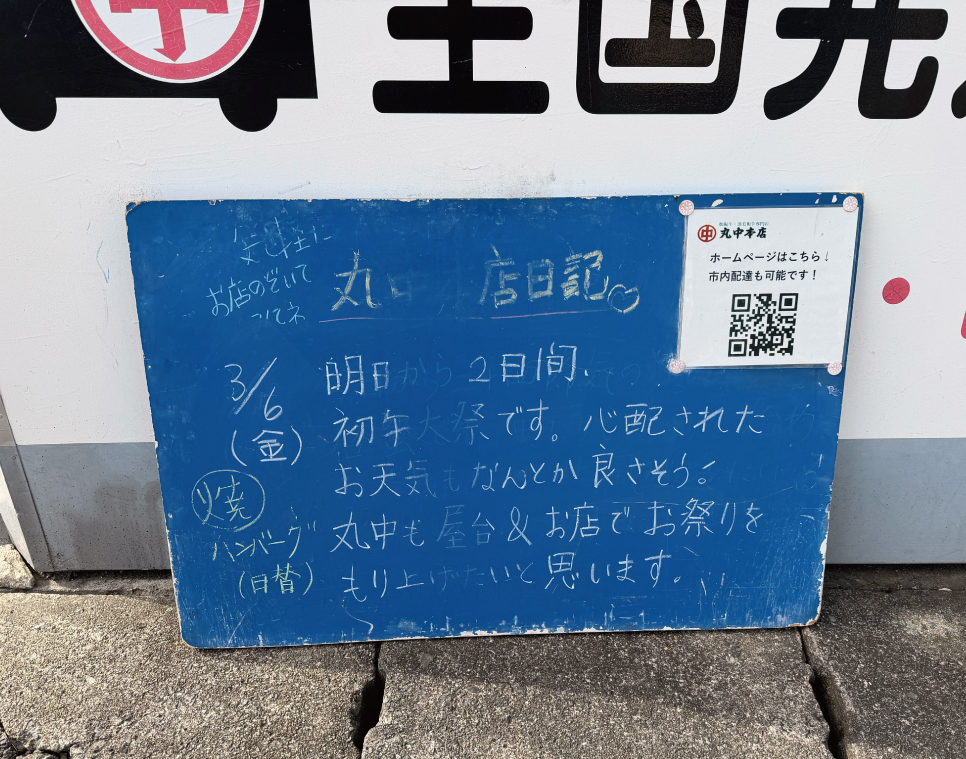 中
全国発
お店のぞいて
ってネ
丸中本店
ホームページはこちら！
市内配達も可能です！
丸中本店日記♡
3/6
(金)
明日から2日間、
初午大祭です。心配された
お天気もなんとか良さそう。
丸中も屋台&お店でお祭りを
もり上げたいと思います。
焼
ハンバーグ
(日替)